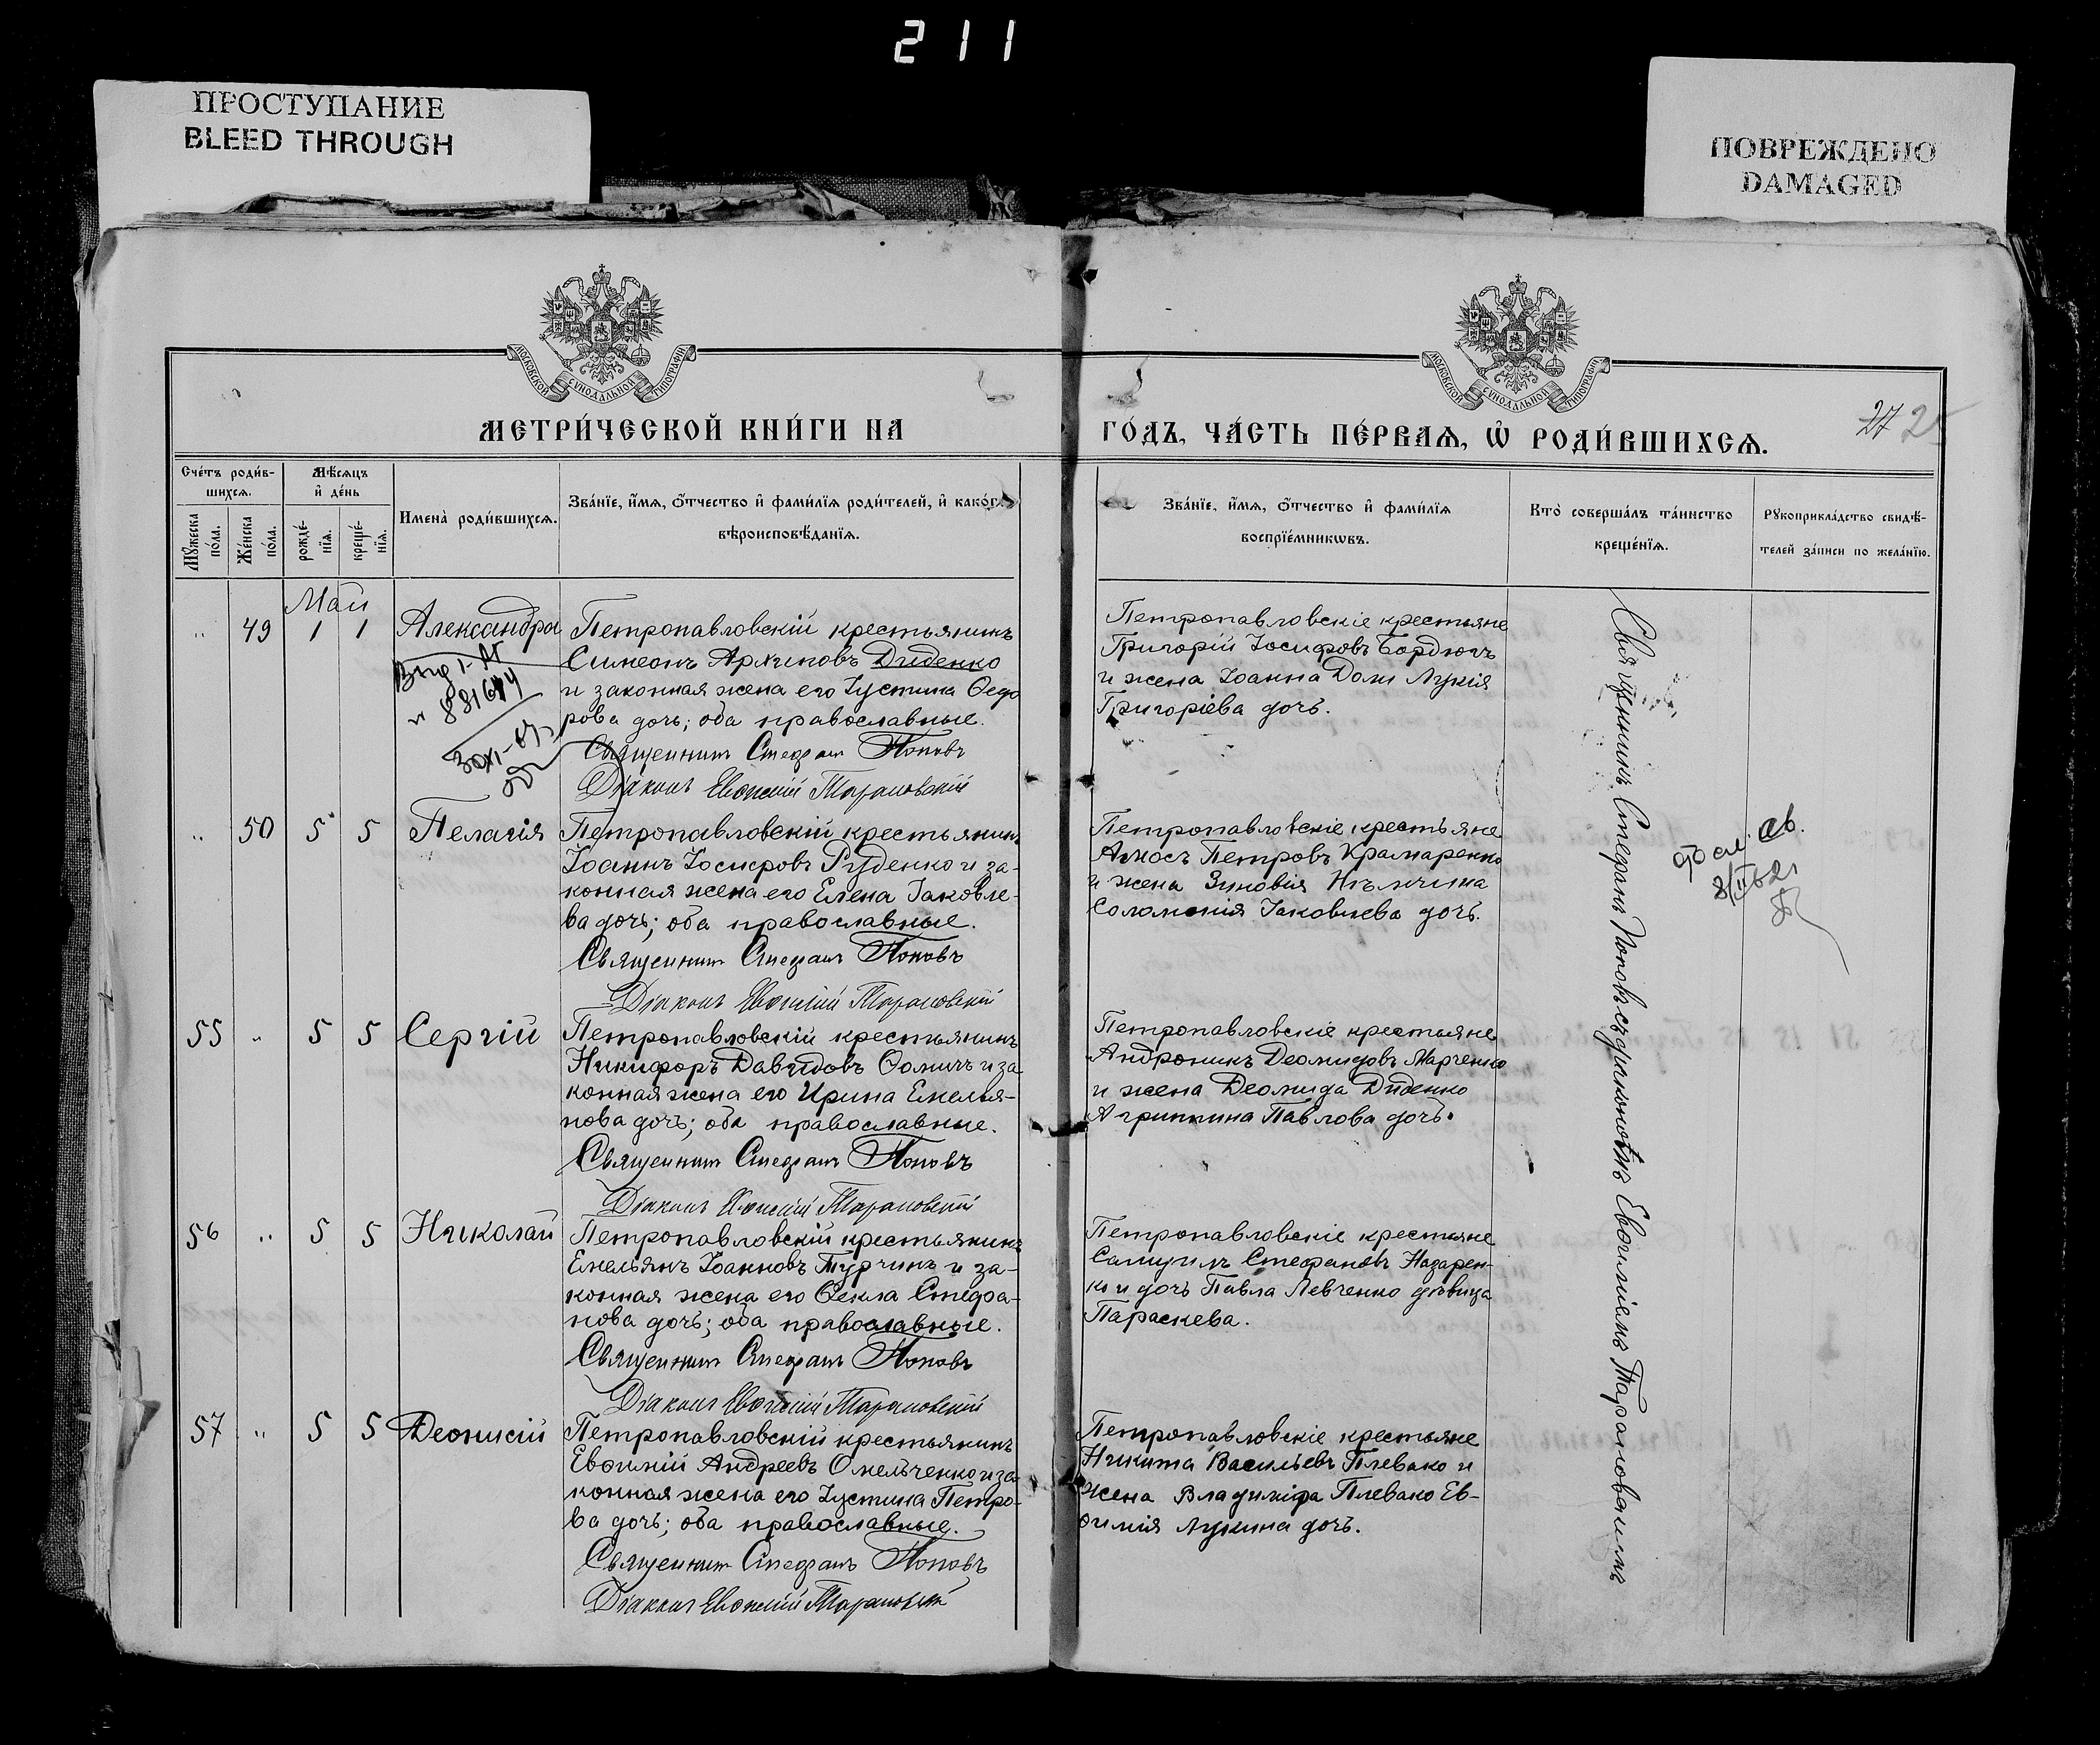 211
ПРОСТУПАНИЕ
BLEED THROUGH
ПОВРЕЖДЕНО
DAMAGED
МОСКОВСКОЙ СѴНОДАЛЬНОЙ ТИПОГРАФІИ
МОСКОВСКОЙ СѴНОДАЛЬНОЙ ТИПОГРАФІИ
27 25
МЕТРИ́ЧЕСКОЙ КНИ́ГИ НА
ГО́ДЪ, ЧА́СТЬ ПЕ́РВАѦ, Ѡ҆ РОДИ́ВШИХСѦ.
Сче́тъ роди́в-
шихсѧ.
Мꙋ́жеска
по́ла.
Же́нска
по́ла.
Мѣ́сѧцъ
и҆ де́нь
рожде́-
нїѧ.
креще́-
нїѧ.
Имена̀ роди́вшихсѧ.
Зва́нїе, и҆́мѧ, ѻ҆́тчество и҆ фами́лїѧ роди́телей, и҆ како́гѡ
вѣроисповѣ́данїѧ.
Зва́нїе, и҆́мѧ, ѻ҆́тчество и҆ фами́лїѧ
воспрїе́мникѡвъ.
Кто̀ соверша́лъ та́инство
креще́нїѧ.
Рꙋкоприкла́дство свидѣ́-
телей за́писи по жела́нїю.
Май
" 49 1 1 Александра
Петропавловскій крестьянинъ
Симеонъ Архиповъ Диденко
и законная жена его Іустина Ѳедо
рова дочь; оба православные.
Священникъ Стефанъ Поповъ
Діаконъ Евѳимій Тарановскій
881674
Петропавловскіе крестьяне
Григорій Іосифовъ Бордюгъ
и жена Іоанна Доли Лукія
Григоріева дочь.
" 50 5 5 Пелагія
Петропавловскій крестьянинъ
Іоаннъ Іосифовъ Руденко и за-
конная жена его Елена Іаковле-
ва дочь; оба православные.
Священникъ Стефанъ Поповъ
Діаконъ Евѳимій Тарановскій
Петропавловскіе крестьяне
Амосъ Петровъ Крамаренко
и жена Зиновія
Соломонія Іаковлева дочь.
55 " 5 5 Сергій
Петропавловскій крестьянинъ
Никифоръ Давидовъ Ѳоличъ и за
конная жена его Ирина Емелья-
нова дочь; оба православные.
Священникъ Стефанъ Поповъ
Діаконъ Евѳимій Тарановскій
Петропавловскіе крестьяне
Андроникъ Деомидовъ Марченко
и жена Деомида Диденко
Агриппина Павлова дочь.
56 " 5 5 Николай
Петропавловскій крестьянинъ
Емельянъ Іоанновъ Турчинъ и за-
конная жена его Ѳекла Стефа-
нова дочь; оба православные.
Священникъ Стефанъ Поповъ
Діаконъ Евѳимій Тарановскій
Петропавловскіе крестьяне
Самуилъ Стефановъ Назарен-
ко и дочь Павла Левченко дѣвица
Параскева.
57 " 5 5 Деонисій
Петропавловскій крестьянинъ
Евѳимій Андреевъ Омельченко и за
конная жена его Іустина Петро-
ва дочь; оба православные.
Священникъ Стефанъ Поповъ
Діаконъ Евѳимій Тарановскій
Петропавловскіе крестьяне
Никита Васильевъ Плевако и
жена Владиміра Плевако Ев-
ѳимія Лукина дочь.
Священникъ Стефанъ Поповъ съ діакономъ Евѳиміемъ Тарановскимъ